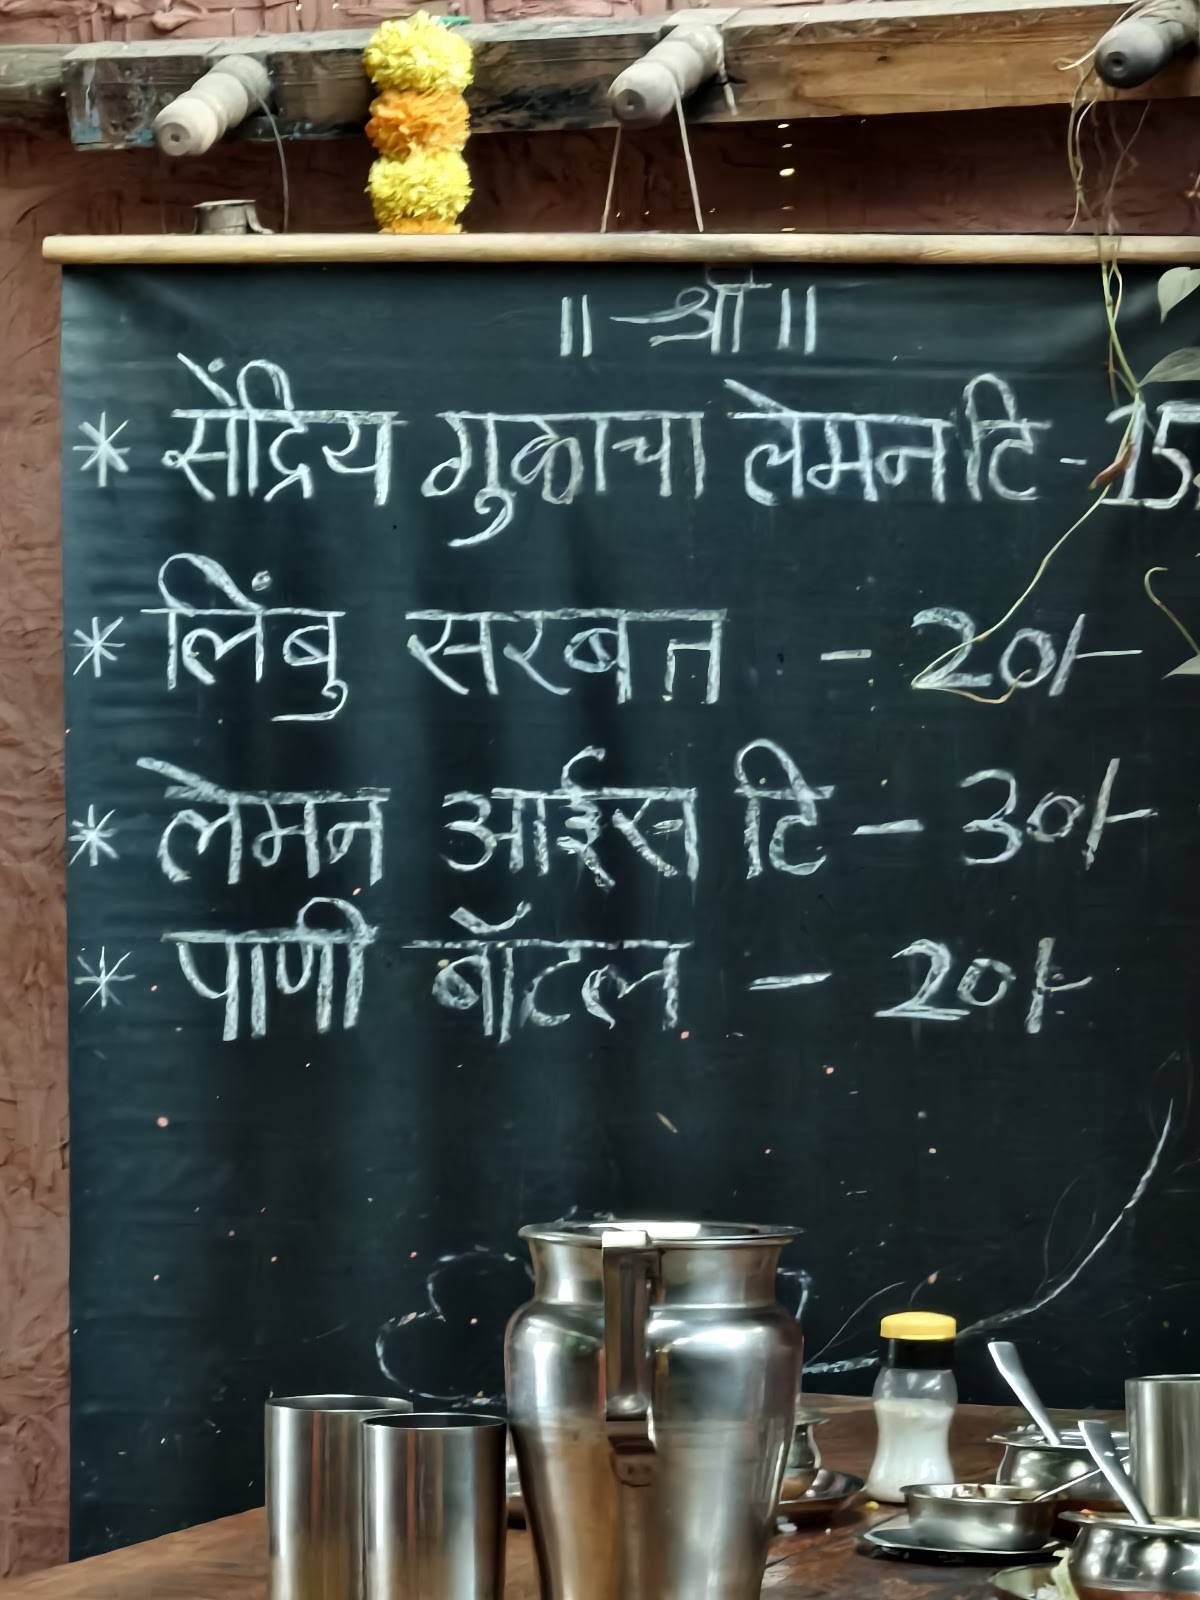 ॥ श्री ॥
* सेंद्रिय गुळाचा लेमन टि - 15
* लिंबु सरबत - 20/-
* लेमन आईस टि - 30/-
* पाणी बॉटल - 20/-